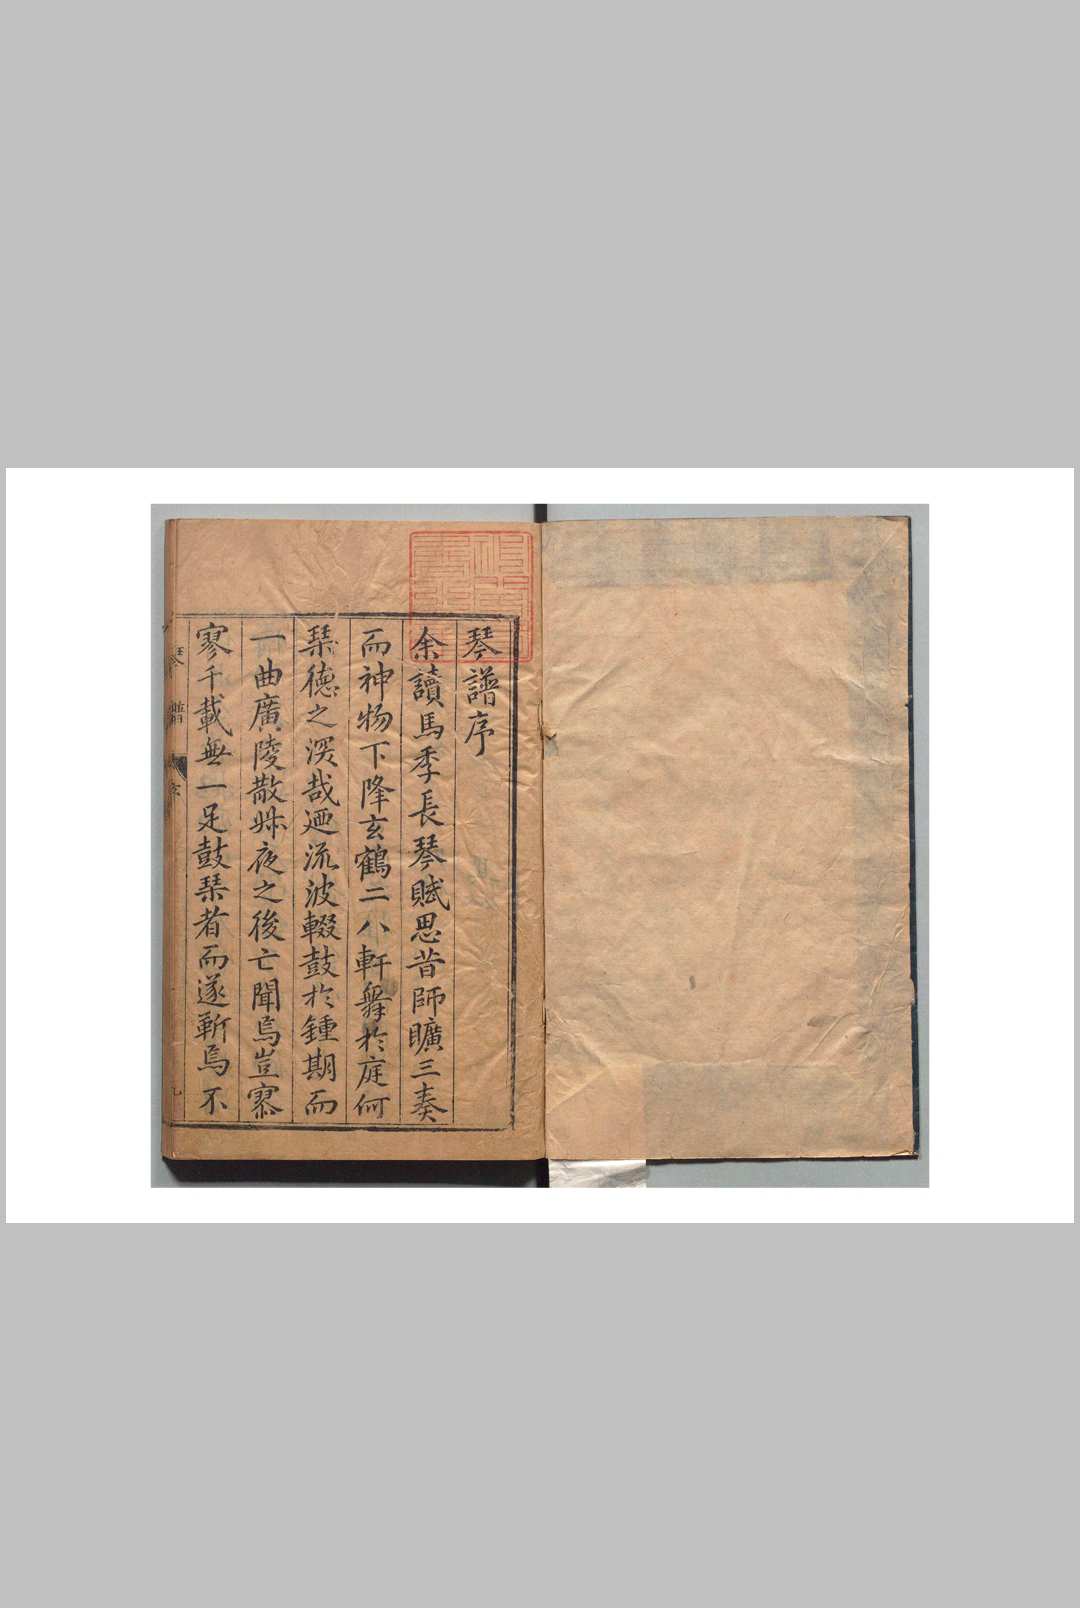 琴譜序
余讀馬季長琴賦思昔師曠三奏
而神物下降玄鶴二八軒舞於庭何
琹德之深哉迺流波輟鼓於鍾期而
一曲廣陵散叔夜之後亡聞焉豈寥
寥千載無一足鼓琹者而遂靳焉不